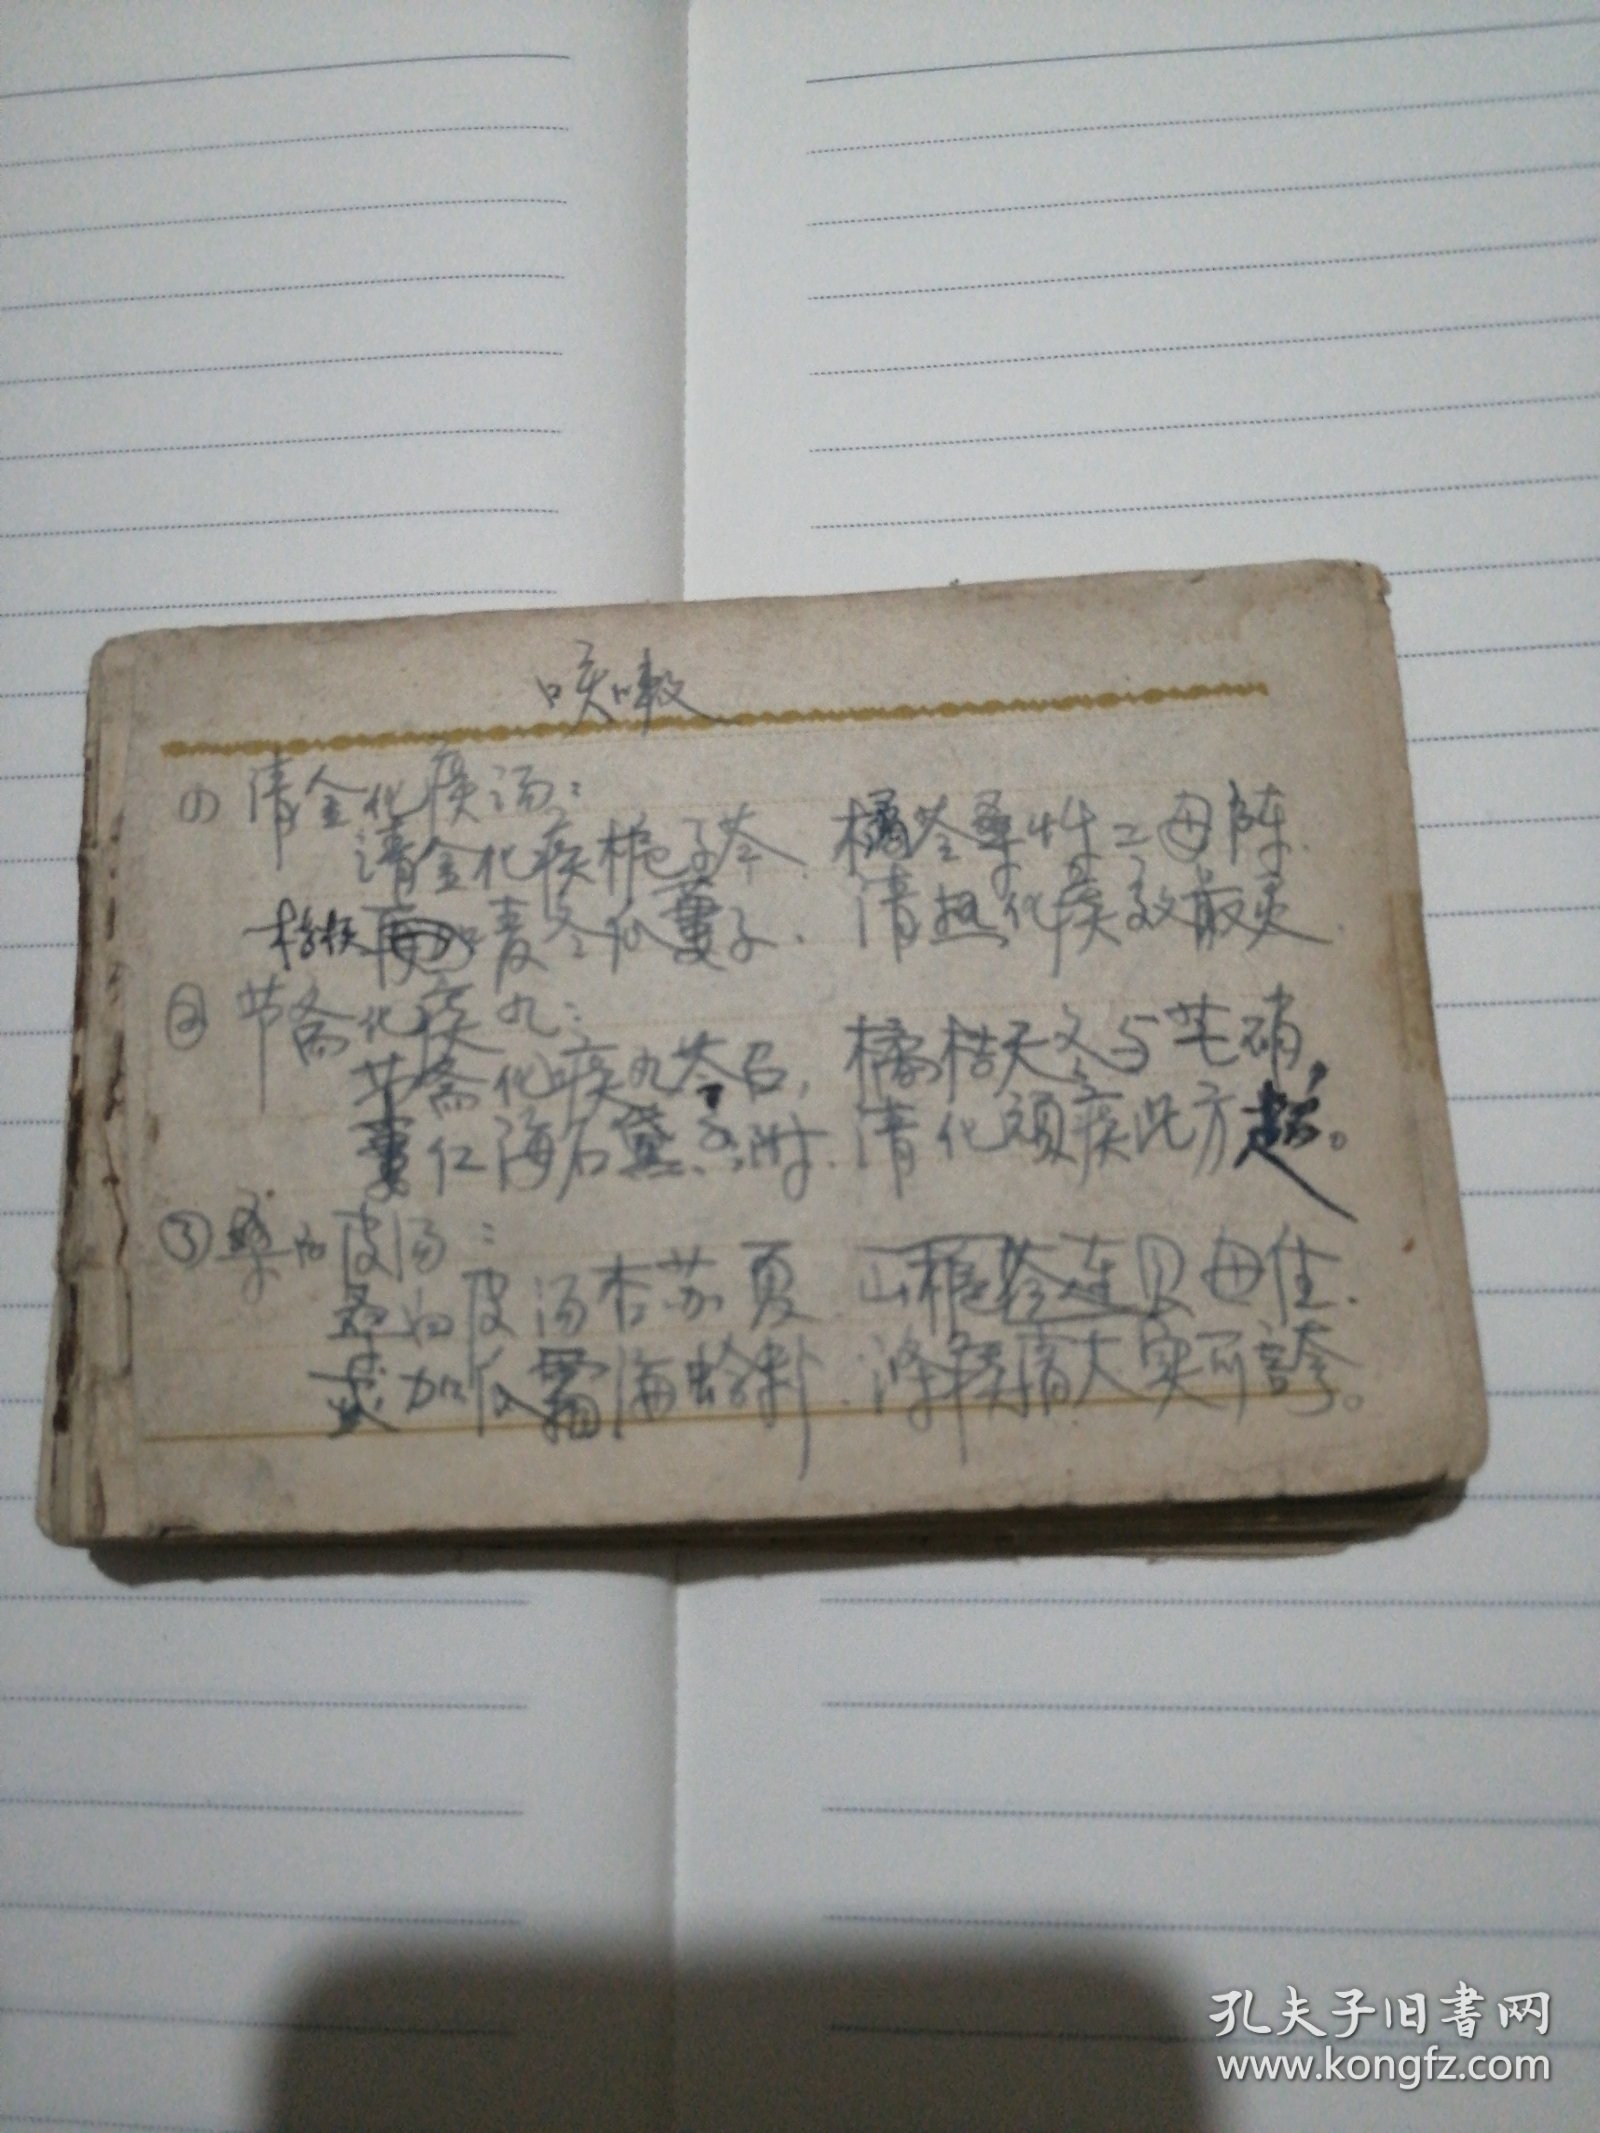 咳嗽
① 清金化痰汤：
清金化痰栀子芩、橘苓桑
二母陈、
桔梗
麦冬瓜蒌子、清热化痰效最灵
② 节斋化痰丸：
节斋化痰丸芩
，橘桔天冬与芒硝，
蒌仁海石黛
附、清化顽痰此方超。
③ 桑白皮汤：
桑白皮汤杏苏夏、山栀芩连贝母佳、
或加
海蛤
、涤痰清火实可夸。
孔夫子旧书网
www.kongfz.com